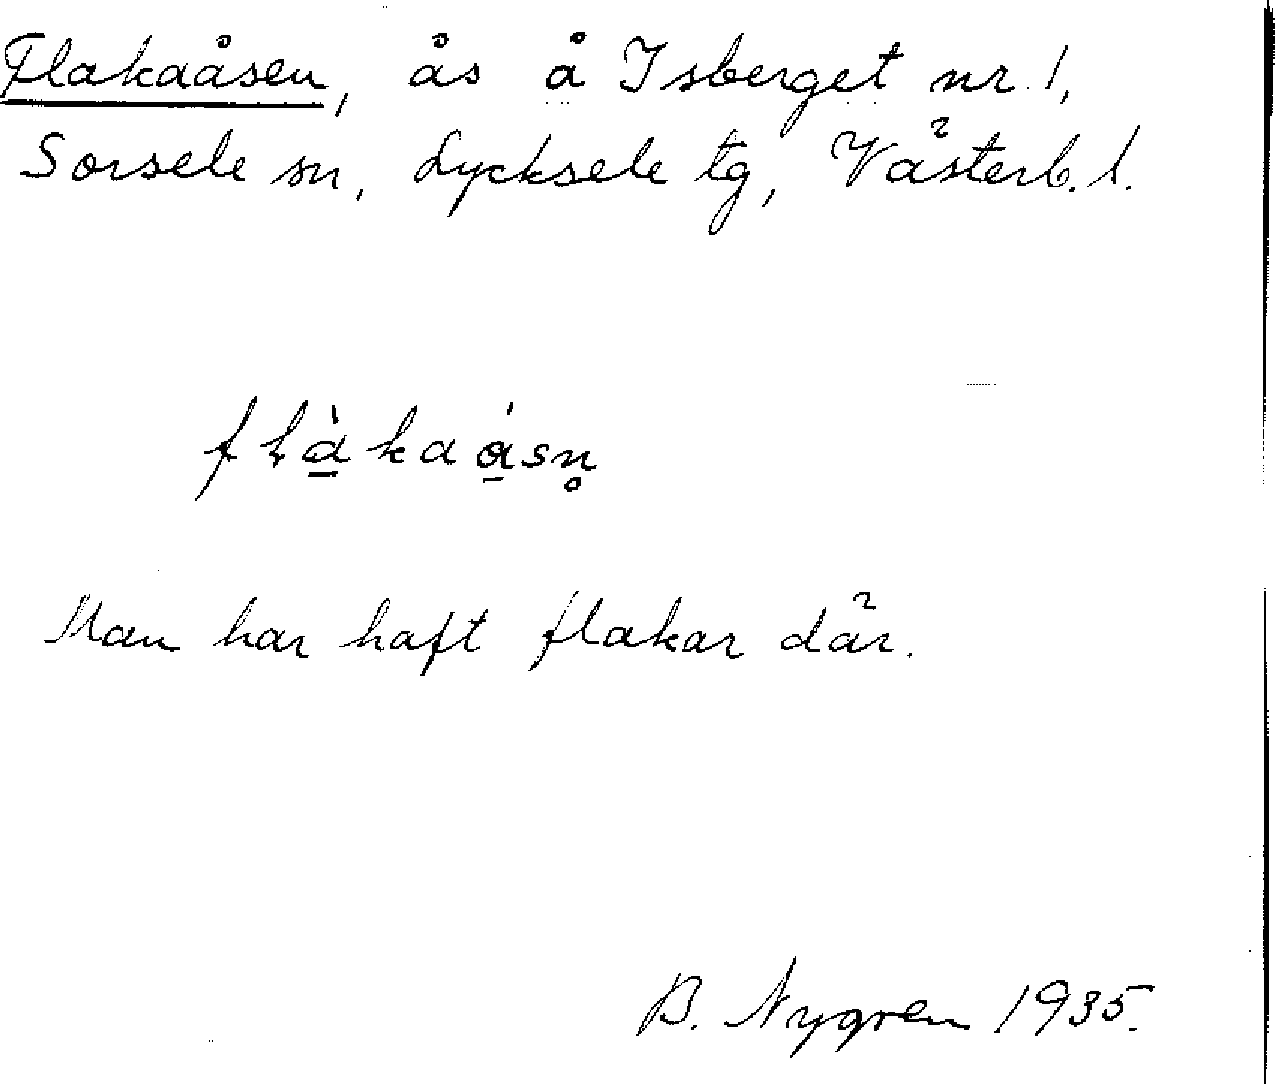 Flakaåsen, ås å Isberget nr 1,
Sorsele sn, Lycksele tg, Västerb. l.
flà̱kaá̱sn̥
Man har haft flakar där.
B. Nygren 1935.